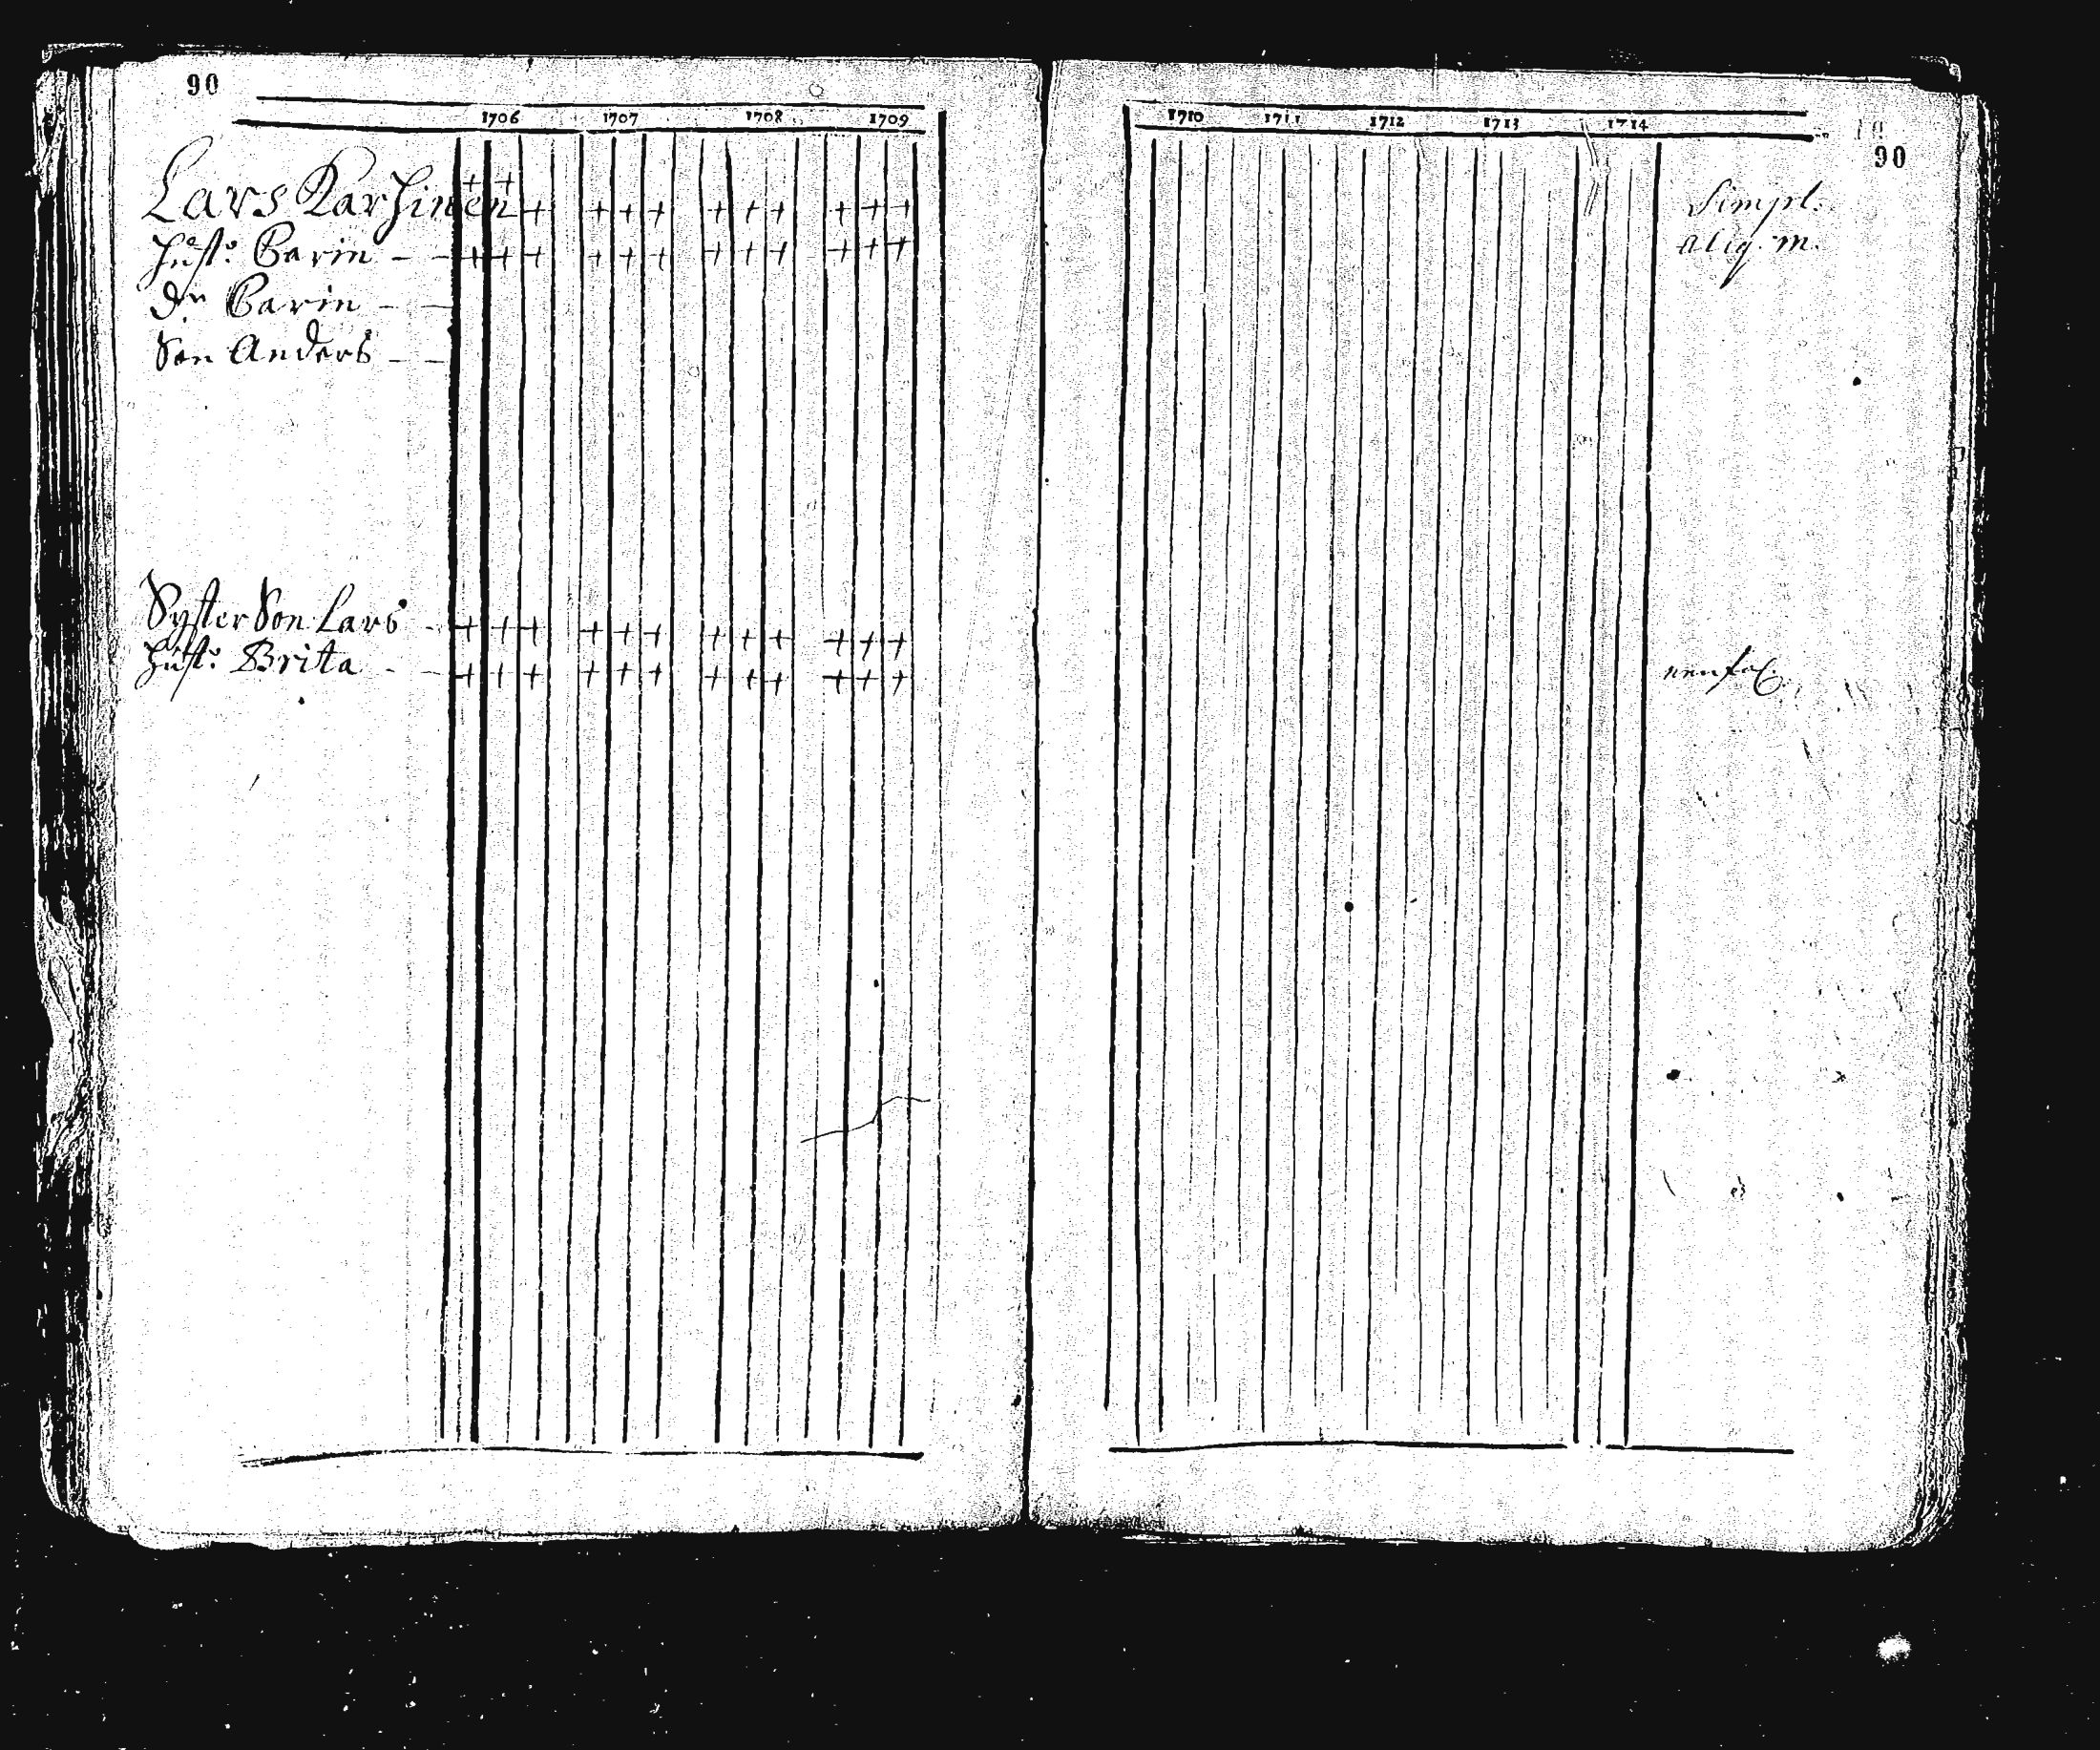 90
1706 1707 1708 1709
Lars Karhinen + + + + + + + + + + + +
Hust: Carin - - + + + + + + + + + + + +
Dr Carin - -
Son Anders - -
Syster Son Lars - + + + + + + + + + + + +
Hust: Brita - - + + + + + + + + + + + +
1710 1711 1712 1713 1714
90
Simpl:
aliq. m.